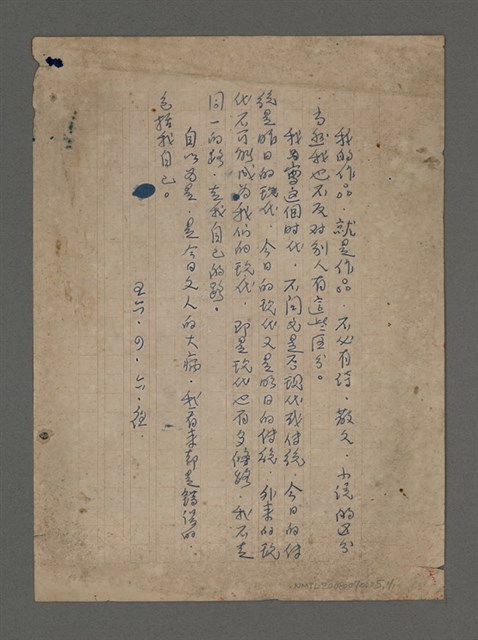 我的作品，就是作品 不必有詩，散文，小說的区分
，当然我也不反对别人有這些区分。
我只會這個时代，不问它是否現代或传統，今日的传
統是昨日的現代，今日的現代又是明日的传統，外来的現
代不可能成為我们的現代，即是現代也有多條路，我不走
同一的路，走我自己的路。
自以为是，是今日文人的大病，我看来却是錯誤的，
包括我自己。
五六．九．六．夜
NMTL